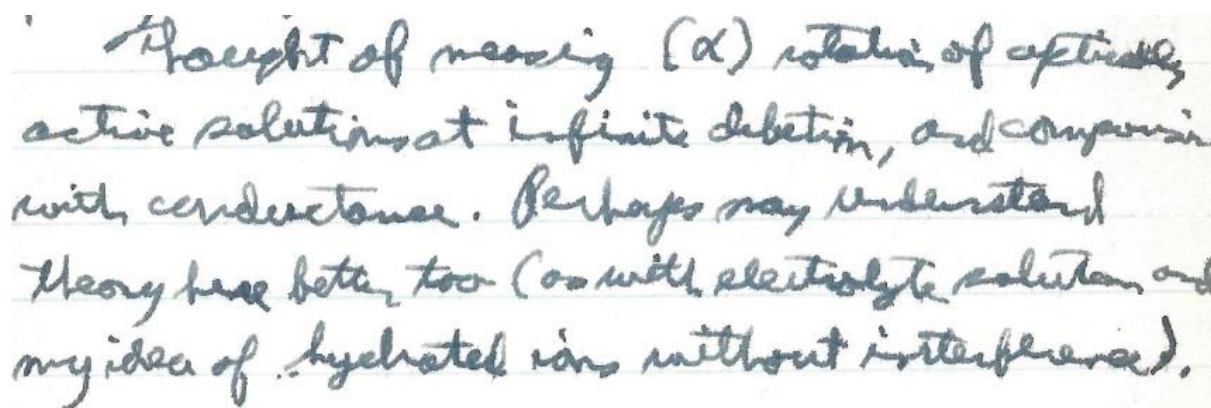 Thought of measing (α) rotation of optically
active solutions at infinite dilution, and comparison
with conductance. Perhaps may understand
theory here better too (as with electrolyte solution and
my idea of hydrated ions without interference).